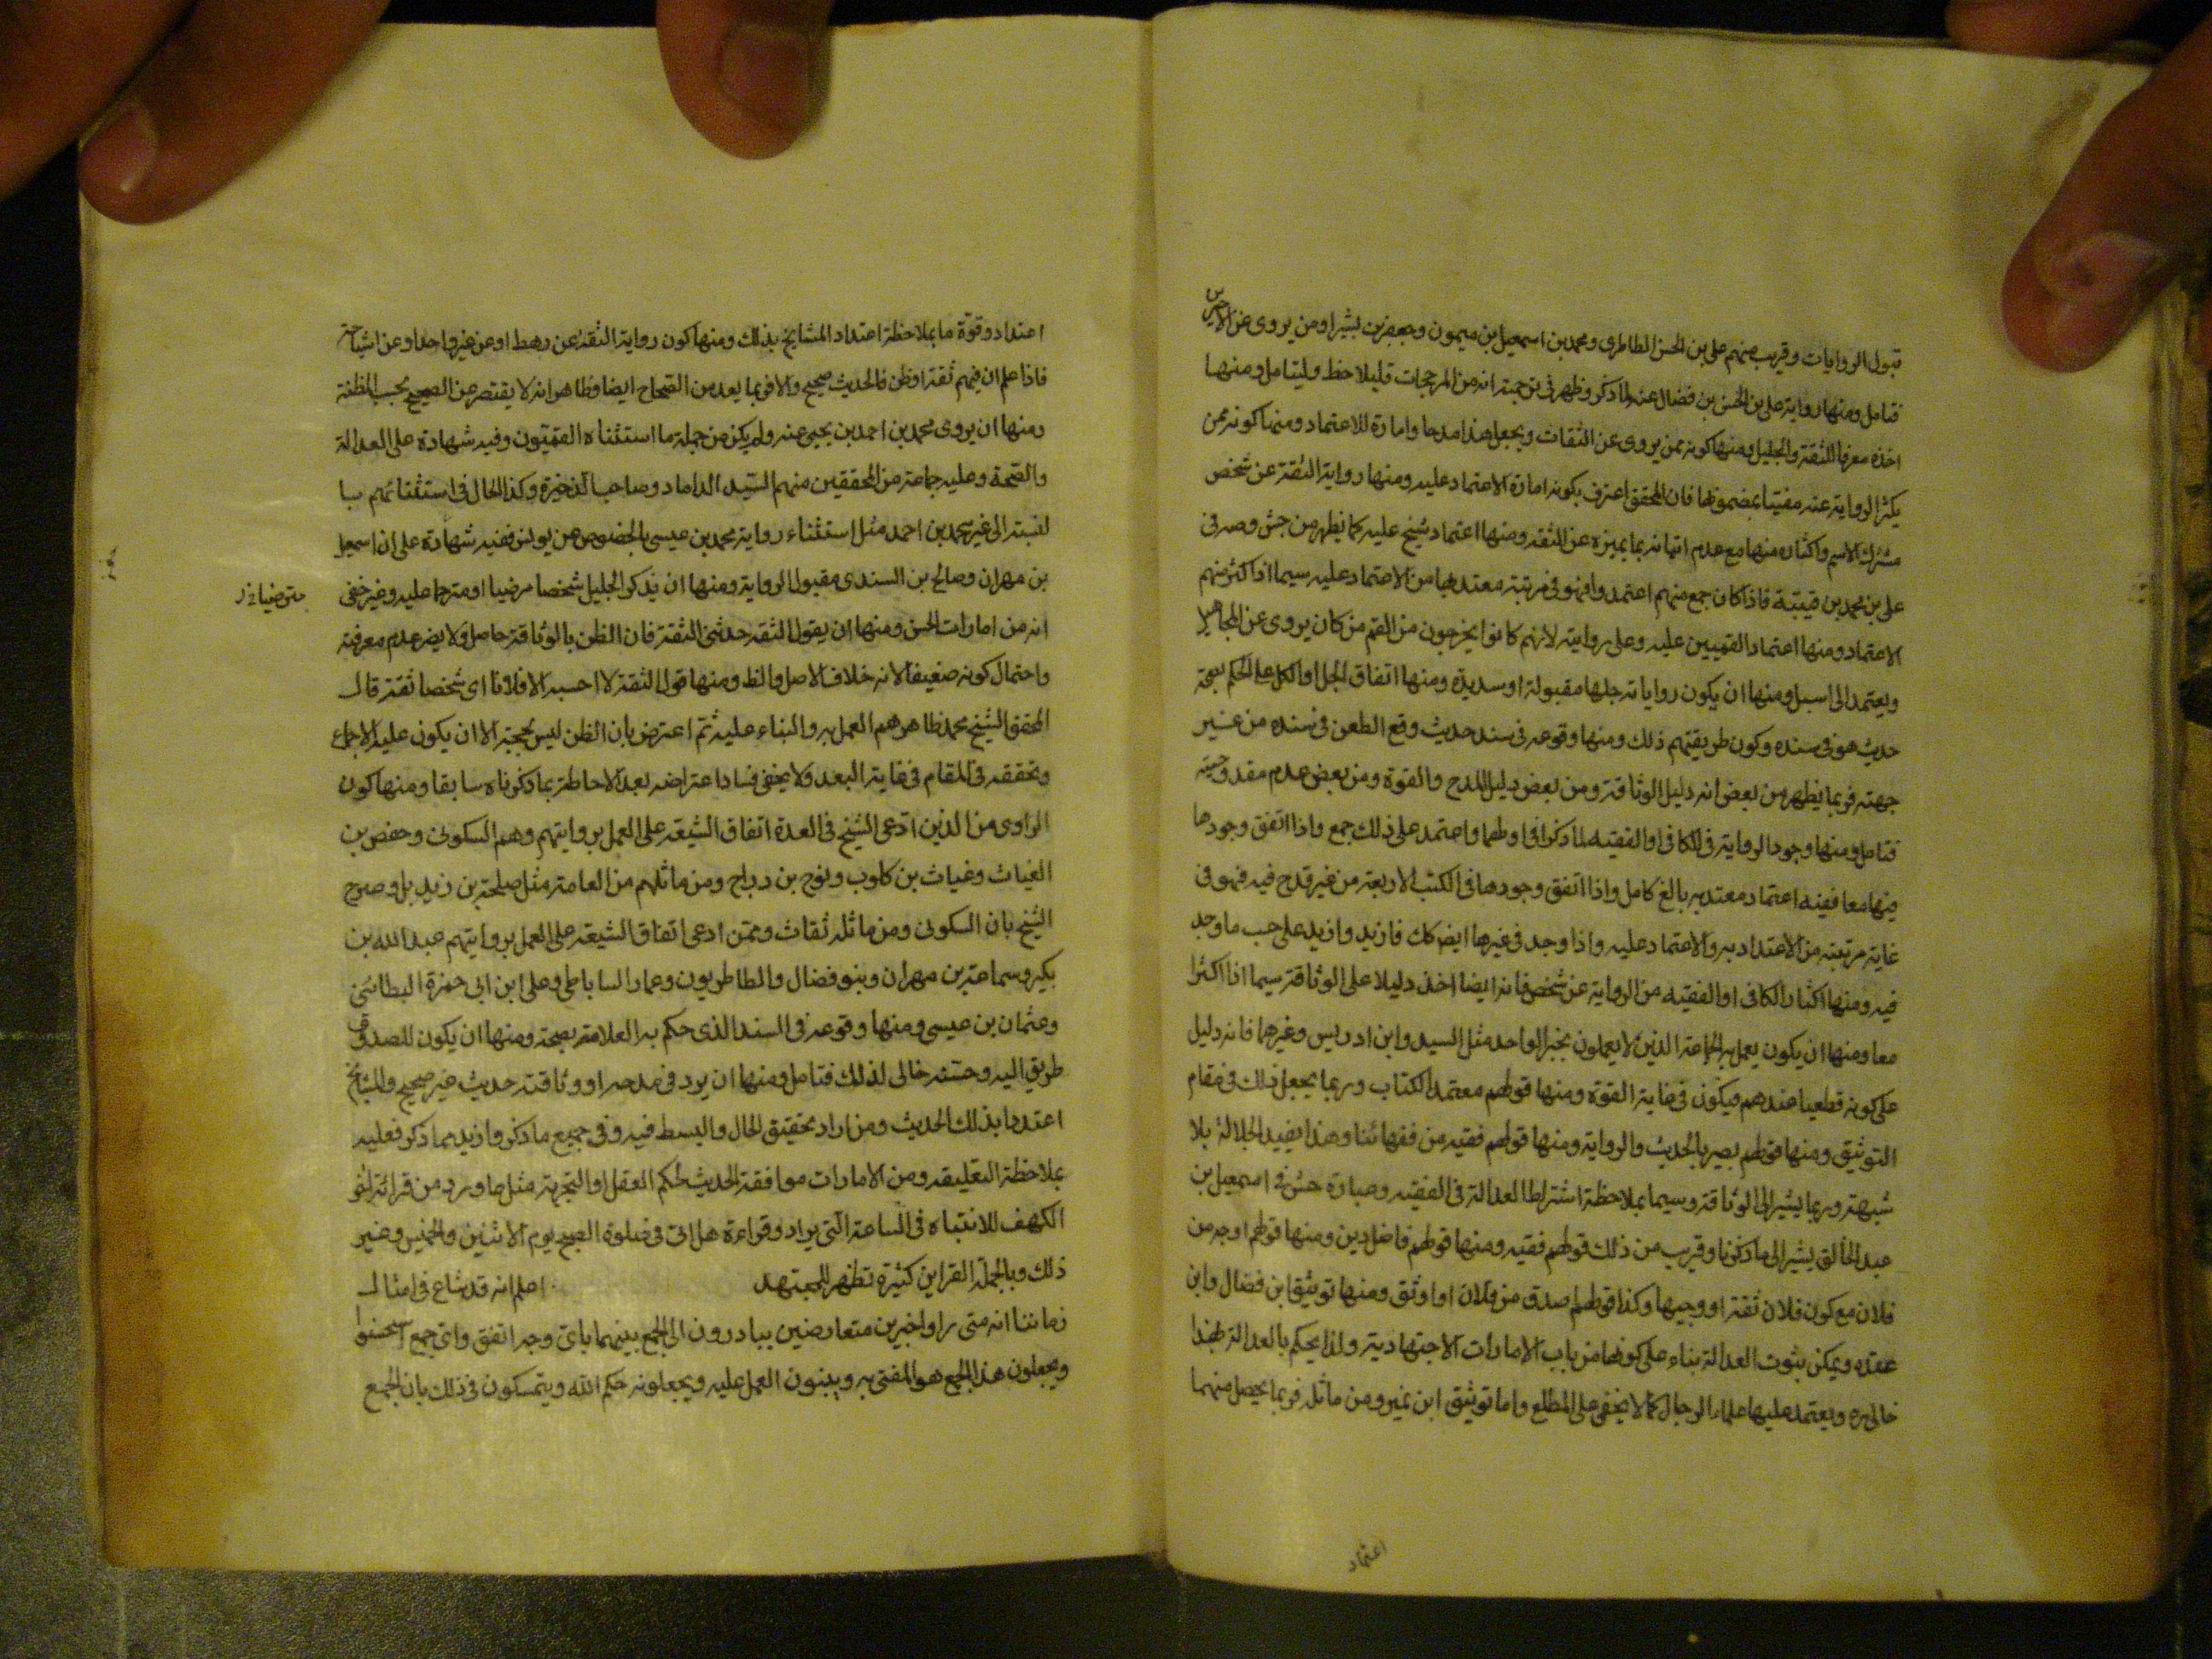 قبول الروايات وقريب منهم على بن الحسن الطاطرى ومحمد بن اسمعيل بن ميمون وجعفر بن بشير اومن يروى عن الاخيرين
فتامل ومنها رواية على بن الحسن بن فضال عنه لما ذكر وظهر فى ترجمته انه من المرجحات فليلاحظ وليتامل ومنها
اخذه معرفا للثقة والجليل ومنها كونه ممن يروى عن الثقات ويجعل هذا مدحا وامارة للاعتماد ومنها كونه ممن
يكثر الرواية عنه مفتيا بمضمونها فان المحقق اعترف بكونه امارة الاعتماد عليه ومنها رواية الثقة عن شخص
مشترك الاسم واكثاره منها مع عدم اتيانه بما يميزه عن الثقة ومنها اعتماد شيخ عليه كما يظهر من جش وصه فى
على بن محمد بن قتيبة فاذا كان جمع منهم اعتمد وافهو فى مرتبة معتد بها من الاعتماد عليه سيما اذا كثر منهم
الاعتماد ومنها اعتماد القميين عليه وعلى روايته لانهم كانوا يخرجون من القم من كان يروى عن المجاهيل
ويعتمد الى اسيل ومنها ان يكون رواياته جلها مقبولة او سديدة ومنها اتفاق الجل او الكل على الحكم بصحة
حديث هو فى سنده وكون طريقتهم ذلك ومنها وقوعه فى سند حديث وقع الطعن فى سنده من غير
جهته فربما يظهر من بعض انه دليل الوثاقة ومن بعض دليل المدح والقوة ومن بعض عدم مقدوحيته
فتامل ومنها وجود الرواية فى الكافى او الفقيه لما ذكرا فى اولهما واعتمد على ذلك جمع واذا اتفق وجودها
فيهما معا ففيه اعتماد معتد به بالغ كامل واذا اتفق وجودها فى الكتب الاربعة من غير قدح فيه فهو فى
غاية مرتبته من الاعتداد به والاعتماد عليه واذا وجد فى غيرها ايض كك فازيد وازيد على حسب ما وجد
فيه ومنها اكثار الكافى او الفقيه من الرواية عن شخص فانه ايضا اخذ دليلا على الوثاقة سيما اذا اكثرا
معا ومنها ان يكون يعمل به الجماعة الذين لا يعملون بخبر الواحد مثل السيد وابن ادريس وغيرهما فانه دليل
على كونه قطعيا عندهم فيكون فى غاية القوة ومنها قولهم معتمد الكتاب وربما يجعل ذلك فى مقام
التوثيق ومنها قولهم بصير بالحديث والرواية ومنها قولهم فقيه من فقهائنا وهذا يفيد الجلالة بلا
شبهة وربما يشير الى الوثاقة وسيما بملاحظة اشتراط العدالة فى الفقيه وعبارة جش فى اسمعيل بن
عبد الخالق يشير الى ما ذكرنا وقريب من ذلك قولهم فقيه ومنها قولهم فاضل دين ومنها قولهم اوجه من
فلان مع كون فلان ثقة او وجيها وكذا قولهم اصدق من فلان او اوثق ومنها توثيق ابن فضال وابن
عقده ويمكن بثوت العدالة بناء على كونها من باب الامارات الاجتهادية ولذا يحكم بالعدالة لهذا
خالى ره ويعتمد عليها علماء الرجال كما لا يخفى على المطلع واما توثيق ابن نمير ومن ماثله فربما يحصل منهما
اعتماد
اعتداد وقوة ما بملاحظة اعتداد المشايخ بذلك ومنها كون رواية الثقة عن رهط او عن غير واحد او عن اشياخه
فاذا علم ان فيهم ثقة اوظن فالحديث صحيح والا فربما يعد من الصحاح ايضا وظاهر انه لا يقتصر عن الصحيح بحسب المظنة
ومنها ان يروى محمد بن احمد بن يحيى عنه ولم يكن من جملة ما استثناه القميون وفيه شهادة على العدالة
والصحة وعليه جماعة من المحققين منهم السيد الداماد وصاحب الذخيرة وكذا الحال فى استثنائهم بـا
لنسبة الى غير محمد بن احمد مثل استثناء رواية محمد بن عيسى بالخصوص عن يونس ففيه شهادة على ان اسمعيل
بن مهران وصالح بن السندى مقبولا الرواية ومنها ان يذكر الجليل شخصا مرضيا او مترحما عليه وغير خفى
مترضيا خ ل
انه من امارات الحسن ومنها ان يقول الثقة حدثنى الثقة فان الظن بالوثاقة حاصل ولا يضر عدم معرفته
واحتمال كونه ضعيفا لانه خلاف الاصل والظ ومنها قول الثقة لا احسبه الا فلانا اى شخصا ثقة قال
المحقق الشيخ محمد ظاهرهم العمل به والبناء عليه ثم اعترض بان الظن ليس بحجة الا ان يكون عليه الاجماع
وتحققه فى المقام فى غاية البعد ولا يخفى فساد اعتراضه بعد الاحاطة بما ذكرناه سابقا ومنها كون
الراوى من الذين ادعى الشيخ فى العدة اتفاق الشيعة على العمل بروايتهم وهم السكونى وحفص بن
الغياث وغياث بن كلوب ونوح بن دراج ومن ماثلهم من العامة مثل طلحة بن زيد بل وصرح
الشيخ بان السكونى ومن ماثله ثقاث وممن ادعى اتفاق الشيعة على العمل بروايتهم عبد الله بن
بكير وسماعة بن مهران وبنو فضال والطاطريون وعمار الساباطى وعلى ابن ابى حمزة البطائنى
وعثمان بن عيسى ومنها وقوعه فى السند الذى حكم به العلامة بصحته ومنها ان يكون للصدوق
طريق اليه وحسنه خالى لذلك فتامل ومنها ان يرد فى مدحه او وثاقته حديث غير صحيح والمشايخ
اعتدوا بذلك الحديث ومن اراد تحقيق الحال والبسط فيه وفى جميع ما ذكر وازيد مما ذكر فعليه
بملاحظة التعليقه ومن الامارات موافقة الحديث لحكم العقل او التجربة مثل ما ورد من قرائة اخر
الكهف للانتباه فى الساعة التى يراد وقراءة هل اتى فى صلوة الصبح يوم الاثنين والخميس وغير
ذلك وبالجملة القراين كثيرة تظهر للمجتهد اعلم انه قد شاع فى امثال
زماننا انه متى راوا خبرين متعارضين يبادرون الى الجمع بينهما باى وجه اتفق واى جمع استحسنوا
ويجعلون هذا الجمع هو المفتى به ويبنون العمل عليه ويجعلونه حكم الله ويتمسكون فى ذلك بان الجمع